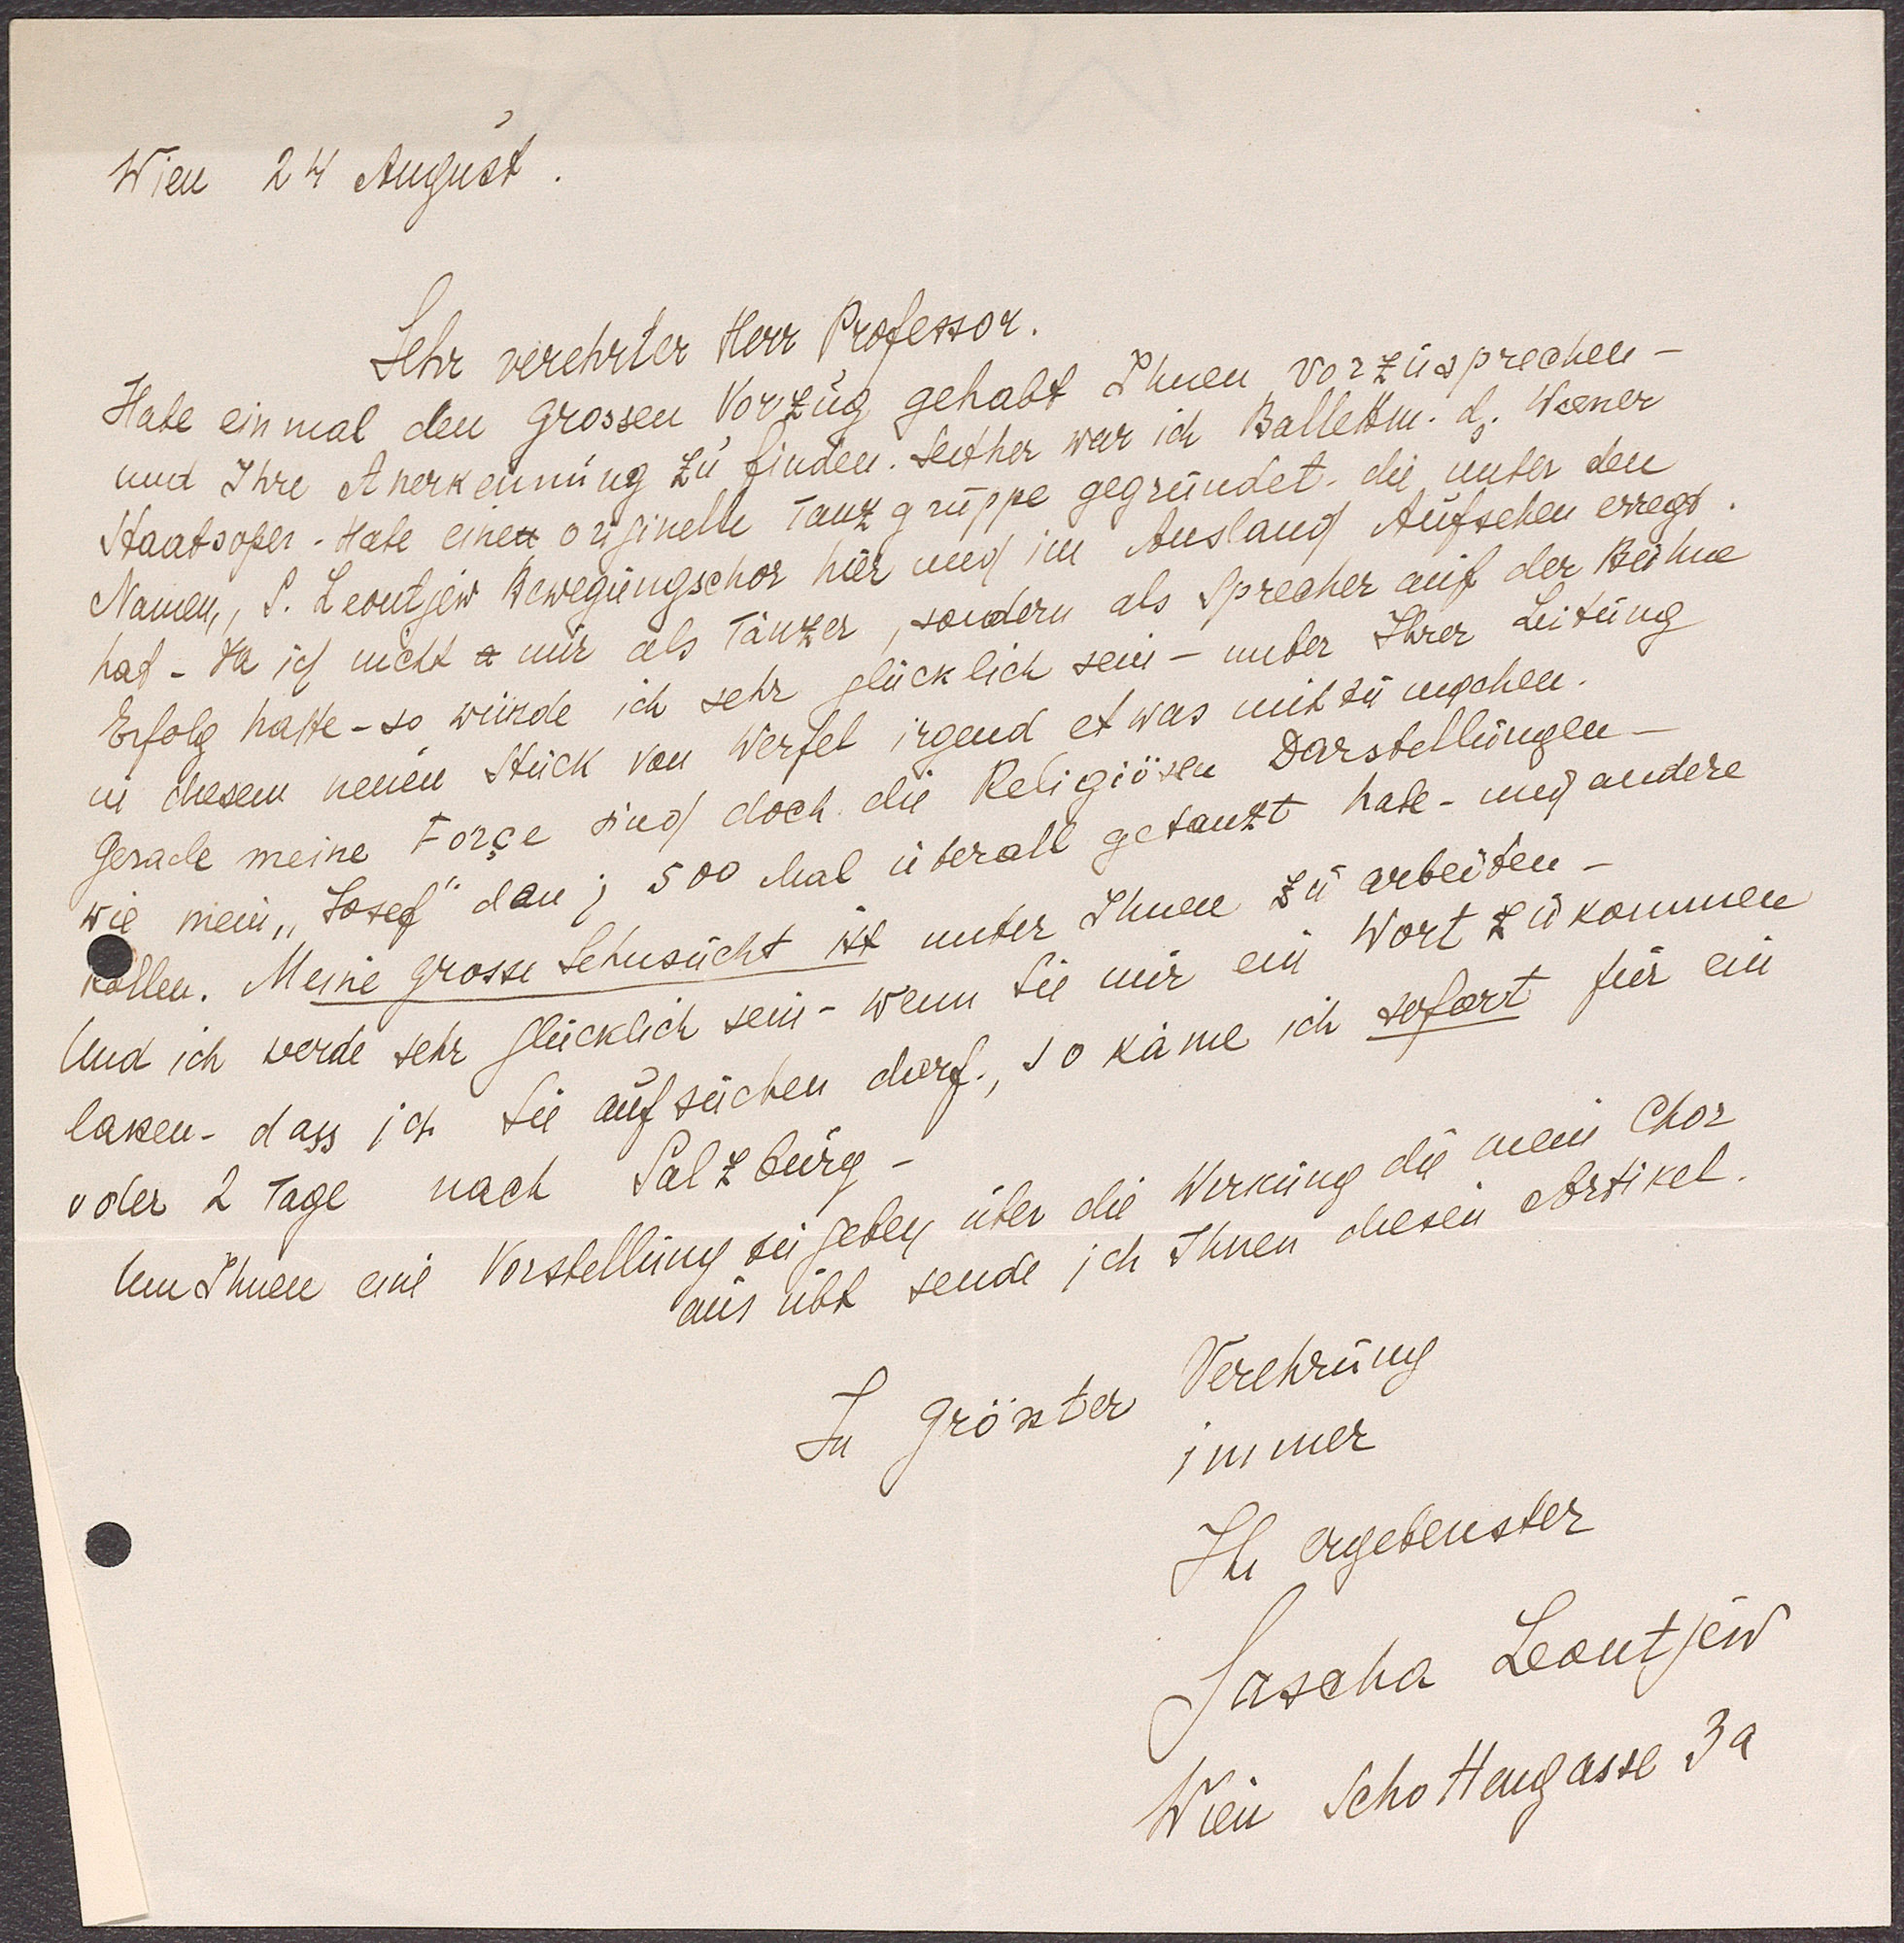 Wien 24 August.
Sehr verehrter Herr Professor.
Habe einmal den grossen Vorzug gehabt Ihnen vorzusprechen -
und Ihre Anerkennung zu finden. Seither war ich Ballettm. d. Wiener
Staatsoper - Habe eine originelle Tanzgruppe gegründet - die unter den
Namen „S. Leontjew Bewegungschor hier und im Ausland Aufsehen erregt
hat - Da ich nicht nur als Tänzer, sondern als Sprecher auf der Bühne
Erfolg hatte - so würde ich sehr glücklich sein - unter Ihrer Leitung
in diesem neuen Stück von Werfel irgend etwas mitzumachen.
Gerade meine Force sind doch die Religiösen Darstellungen -
wie mein „Josef" den i 500 Mal überall getanzt habe - und andere
Rollen. Meine grosse Sehnsucht ist unter Ihnen zu arbeiten -
Und ich werde sehr glücklich sein - wenn Sie mir ein Wort zukommen
lassen - dass ich Sie aufsuchen darf., so käme ich sofort für ein
oder 2 Tage nach Salzburg -
Um Ihnen eine Vorstellung zu geben über die Wirkung die mein Chor
ausübt sende ich Ihnen diesen Artikel.
In grösster Verehrung
immer
Ihr ergebenster
Sascha Leontjew
Wien Schottengasse 3a